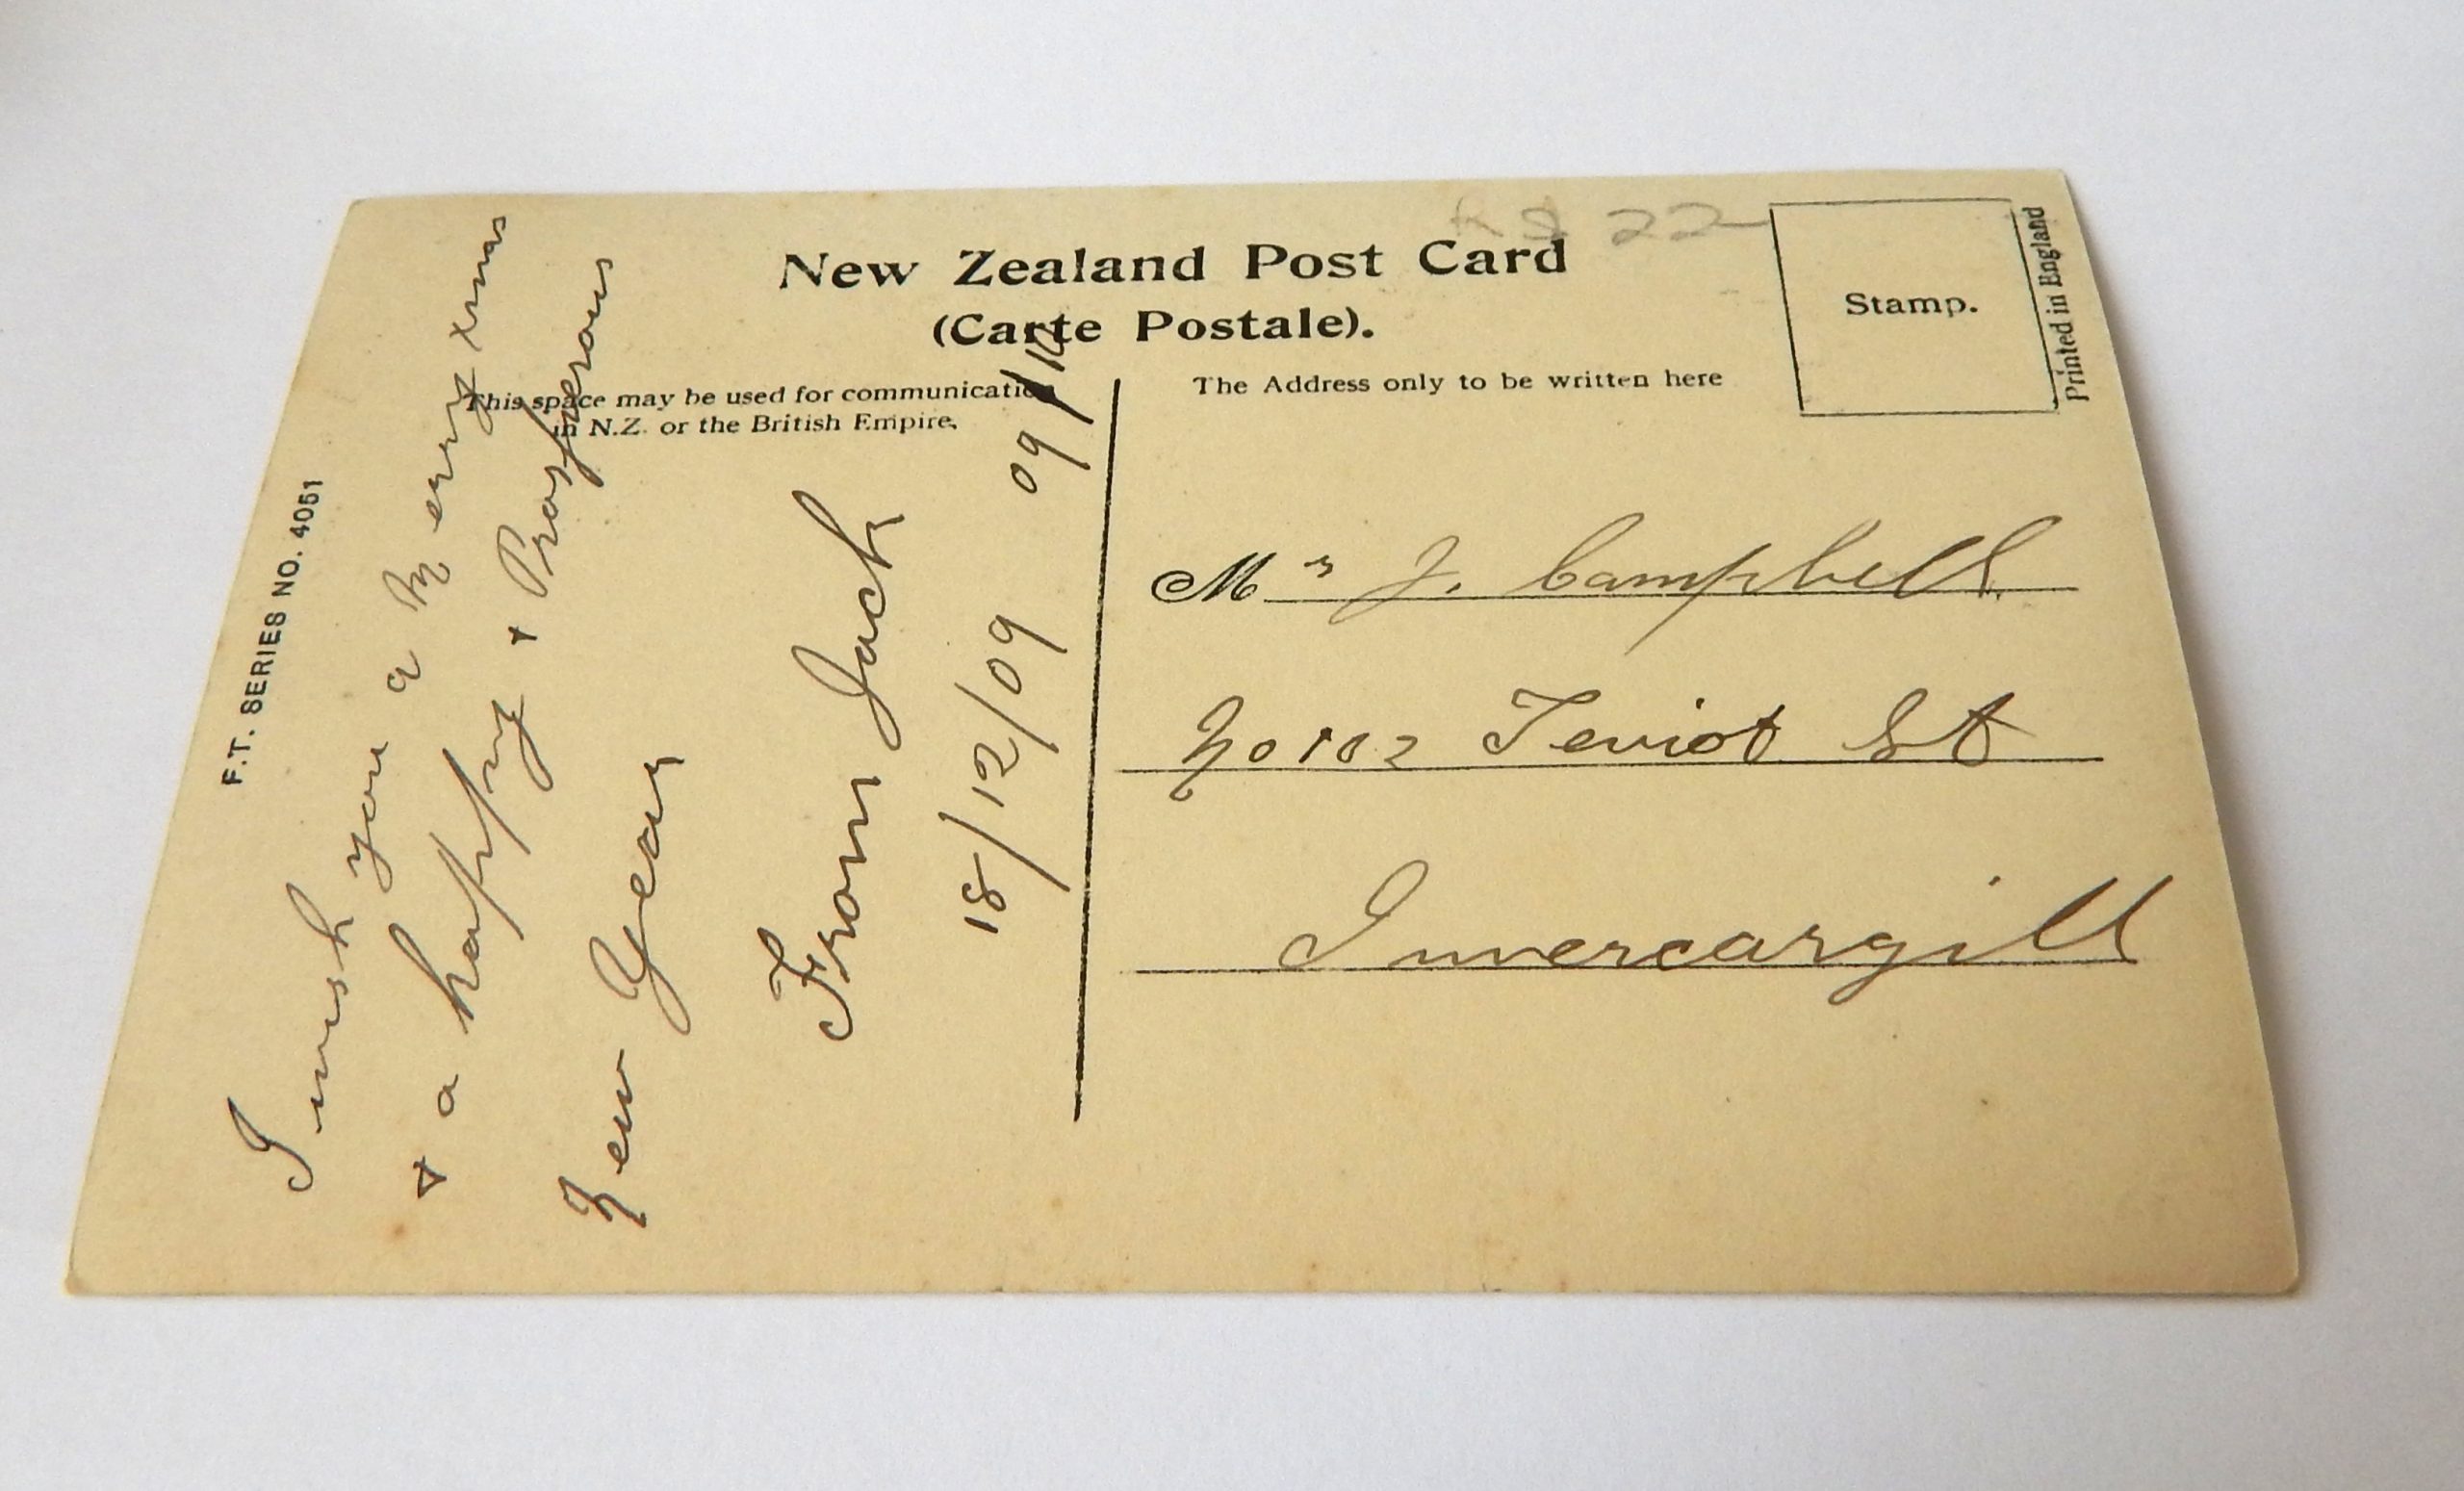 New Zealand Post Card
(Carte Postale).
Stamp.
Printed in England
This space may be used for communication
in N.Z. or the British Empire.
The Address only to be written here
F.T. SERIES NO. 4051
I wish you a Merry Xmas
+ a happy + Prosperous
New Year
From Jack
18/12/09
09/
Mr J. Campbell.
No 102 Teviot St
Invercargill
22